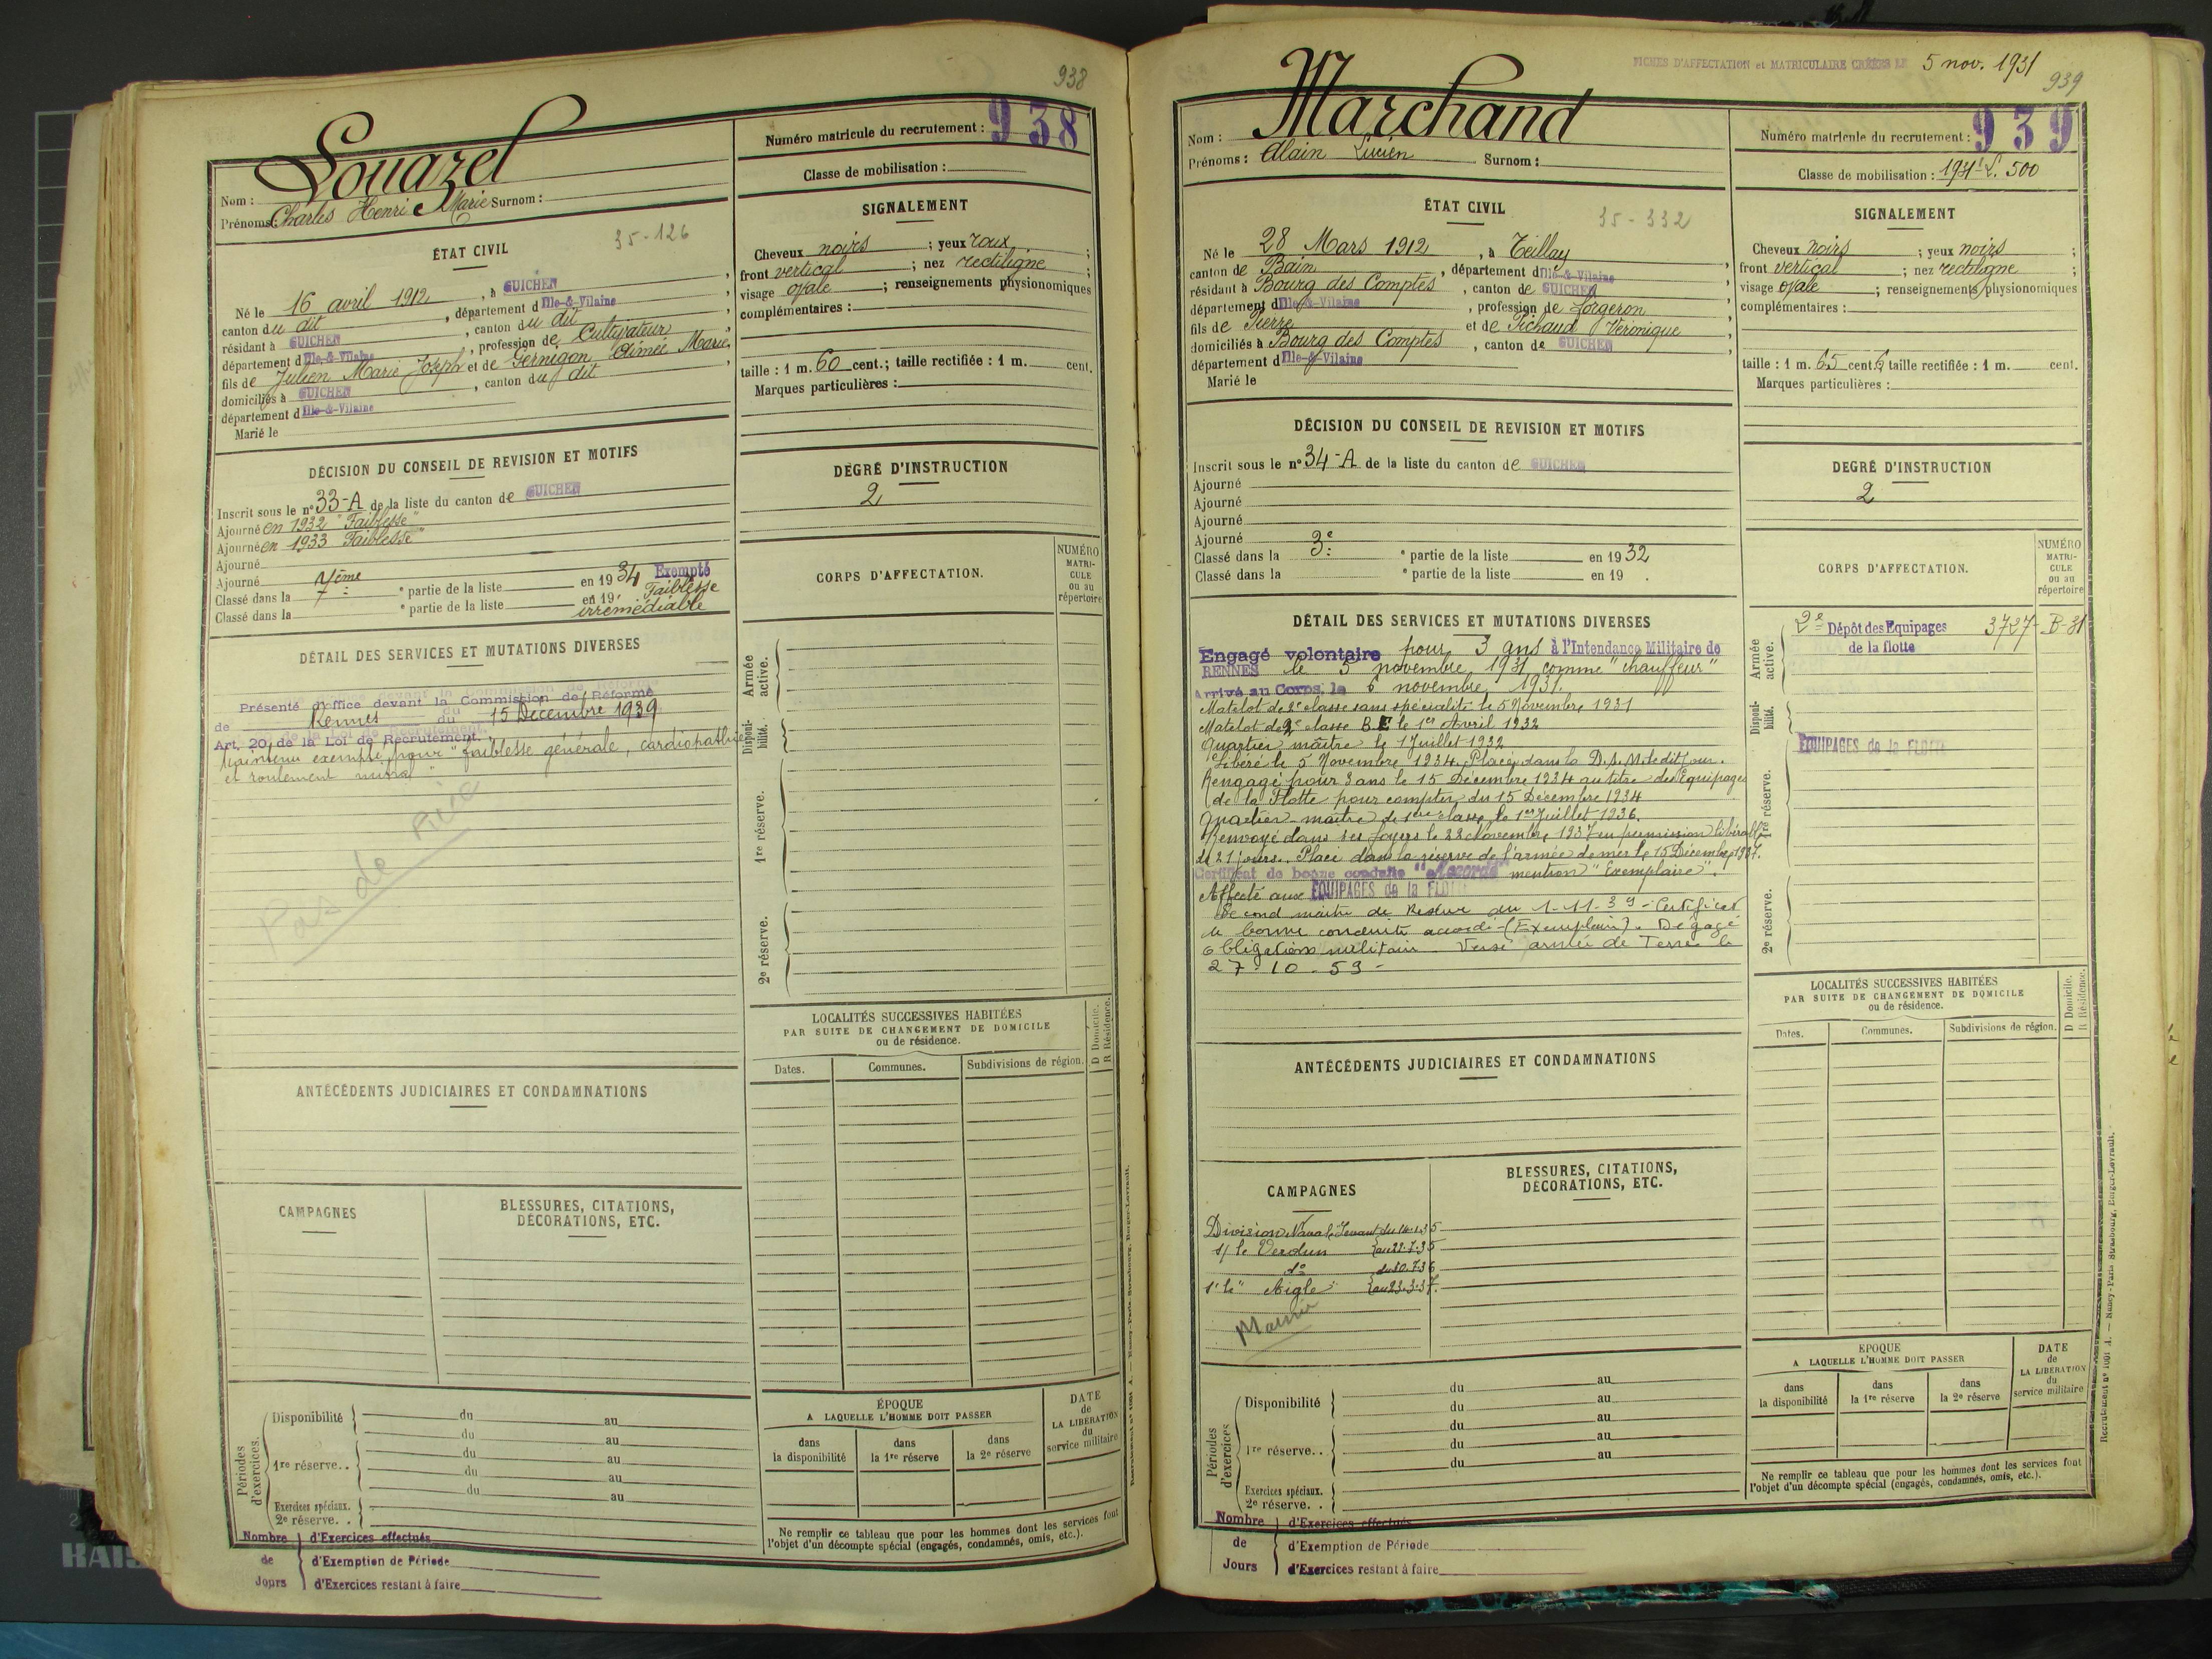 938
Louazel
Nom :
Prénoms : Charles Henri Marie Surnom :
Numéro matricule du recrutement : 938
Classe de mobilisation :
ÉTAT CIVIL
35-126
Né le 16 avril 1912, à GUICHEN
canton du dit, département d'Ille-&-Vilaine
résidant à GUICHEN, canton du dit
département d'Ille-&-Vilaine, profession de Cultivateur
fils de Julien Marie Joseph et de Gernigon Aimée Marie
domiciliés à GUICHEN, canton du dit
département d'Ille-&-Vilaine
Marié le
SIGNALEMENT
Cheveux noirs ; yeux roux ;
front vertical ; nez rectiligne ;
visage ovale ; renseignements physionomiques
complémentaires :
taille : 1 m. 60 cent.; taille rectifiée : 1 m. cent.
Marques particulières :
DÉCISION DU CONSEIL DE REVISION ET MOTIFS
Inscrit sous le nº 33-A de la liste du canton de GUICHEN
Ajourné en 1932 "Faiblesse"
Ajourné en 1933 "Faiblesse"
Ajourné
Ajourné
Classé dans la 7ème e partie de la liste en 1934 Exempté
Classé dans la e partie de la liste en 19 Faiblesse
irrémédiable
DEGRÉ D'INSTRUCTION
2
CORPS D'AFFECTATION.
NUMÉRO
MATRI-
CULE
ou au
répertoire
DÉTAIL DES SERVICES ET MUTATIONS DIVERSES
Présenté d'office devant la Commission de Réforme
de Rennes du 15 Décembre 1939
Art. 20 de la Loi de Recrutement.
Maintenu exempté pour "faiblesse générale, cardiopathie
et roulement mitral"
Pas de
Armée
active.
Disponi-
bilité.
1re réserve.
2e réserve.
ANTÉCÉDENTS JUDICIAIRES ET CONDAMNATIONS
LOCALITÉS SUCCESSIVES HABITÉES
PAR SUITE DE CHANGEMENT DE DOMICILE
ou de résidence.
D Domicile.
R Résidence.
Dates.
Communes.
Subdivisions de région.
CAMPAGNES
BLESSURES, CITATIONS,
DÉCORATIONS, ETC.
Périodes
d'exercices.
Disponibilité
du au
du au
1re réserve..
du au
du au
du au
Exercices spéciaux.
2e réserve. .
ÉPOQUE
A LAQUELLE L'HOMME DOIT PASSER
dans
la disponibilité
dans
la 1re réserve
dans
la 2e réserve
DATE
de
LA LIBÉRATION
du
service militaire
Ne remplir ce tableau que pour les hommes dont les services font
l'objet d'un décompte spécial (engagés, condamnés, omis, etc.).
Nombre
de
Jours
d'Exercices effectués
d'Exemption de Période
d'Exercices restant à faire
FICHES D'AFFECTATION et MATRICULAIRE CRÉÉES LE 5 nov. 1931
939
Marchand
Nom :
Prénoms : Alain Lucien Surnom :
Numéro matricule du recrutement : 939
Classe de mobilisation : 1931 500
ÉTAT CIVIL
35-332
Né le 28 Mars 1912, à Teillay
canton de Bain, département d'Ille-&-Vilaine
résidant à Bourg des Comptes, canton de GUICHEN
département d'Ille-&-Vilaine, profession de forgeron
fils de Pierre et de Pichaud Véronique
domiciliés à Bourg des Comptes, canton de GUICHEN
département d'Ille-&-Vilaine
Marié le
SIGNALEMENT
Cheveux noirs ; yeux noirs ;
front vertical ; nez rectiligne ;
visage ovale ; renseignements physionomiques
complémentaires :
taille : 1 m. 65 cent. 6 taille rectifiée : 1 m. cent.
Marques particulières :
DÉCISION DU CONSEIL DE REVISION ET MOTIFS
Inscrit sous le nº 34-A de la liste du canton de GUICHEN
Ajourné
Ajourné
Ajourné
Ajourné
Classé dans la 3e e partie de la liste en 1932
Classé dans la e partie de la liste en 19 .
DEGRÉ D'INSTRUCTION
2
CORPS D'AFFECTATION.
NUMÉRO
MATRI-
CULE
ou au
répertoire
DÉTAIL DES SERVICES ET MUTATIONS DIVERSES
Engagé volontaire pour 3 ans à l'Intendance Militaire de
RENNES le 5 novembre 1931 comme "chauffeur"
Arrivé au Corps le 6 novembre 1931.
Matelot de 2e classe sans spécialité le 5 Novembre 1931
Matelot de 2e classe B.E le 1er Avril 1932
Quartier maître le 1 Juillet 1932
Libéré le 5 Novembre 1934. Placé dans la D.A.M. le dit jour.
Rengagé pour 3 ans le 15 Décembre 1934 au titre des Equipages
de la Flotte pour compter du 15 Décembre 1934
Quartier maître de 1ère classe le 1er Juillet 1936.
Renvoyé dans ses foyers le 22 Novembre 1937 en permission libérable
de 21 jours. Placé dans la réserve de l'armée de mer le 15 Décembre 1937.
Certificat de bonne conduite "accordé" mention "Exemplaire".
Affecté aux EQUIPAGES de la FLOTTE
Second maître de Réserve du 1-11-39 - Certificat
de bonne conduite accordé - (Exemplaire). Dégagé
obligations militaires Versé armée de Terre le
27-10-59 -
Armée
active.
2e Dépôt des Equipages
de la flotte
3727-B-31
Disponi-
bilité.
EQUIPAGES de la FLOTTE
1re réserve.
2e réserve.
ANTÉCÉDENTS JUDICIAIRES ET CONDAMNATIONS
LOCALITÉS SUCCESSIVES HABITÉES
PAR SUITE DE CHANGEMENT DE DOMICILE
ou de résidence.
D Domicile.
R Résidence.
Dates.
Communes.
Subdivisions de région.
CAMPAGNES
BLESSURES, CITATIONS,
DÉCORATIONS, ETC.
Division Navale Levant du 14.1.35
s/ le Verdun au 22.7.35
do du 30.7.36
s/ le "Aigle" au 23.3.37.
Périodes
d'exercices
Disponibilité
du au
du au
1re réserve..
du au
du au
du au
Exercices spéciaux.
2e réserve. .
ÉPOQUE
A LAQUELLE L'HOMME DOIT PASSER
dans
la disponibilité
dans
la 1re réserve
dans
la 2e réserve
DATE
de
LA LIBÉRATION
du
service militaire
Ne remplir ce tableau que pour les hommes dont les services font
l'objet d'un décompte spécial (engagés, condamnés, omis, etc.).
Nombre
de
Jours
d'Exercices effectués
d'Exemption de Période
d'Exercices restant à faire
Recrutement nº 1001 A. — Nancy-Paris-Strasbourg, Berger-Levrault.